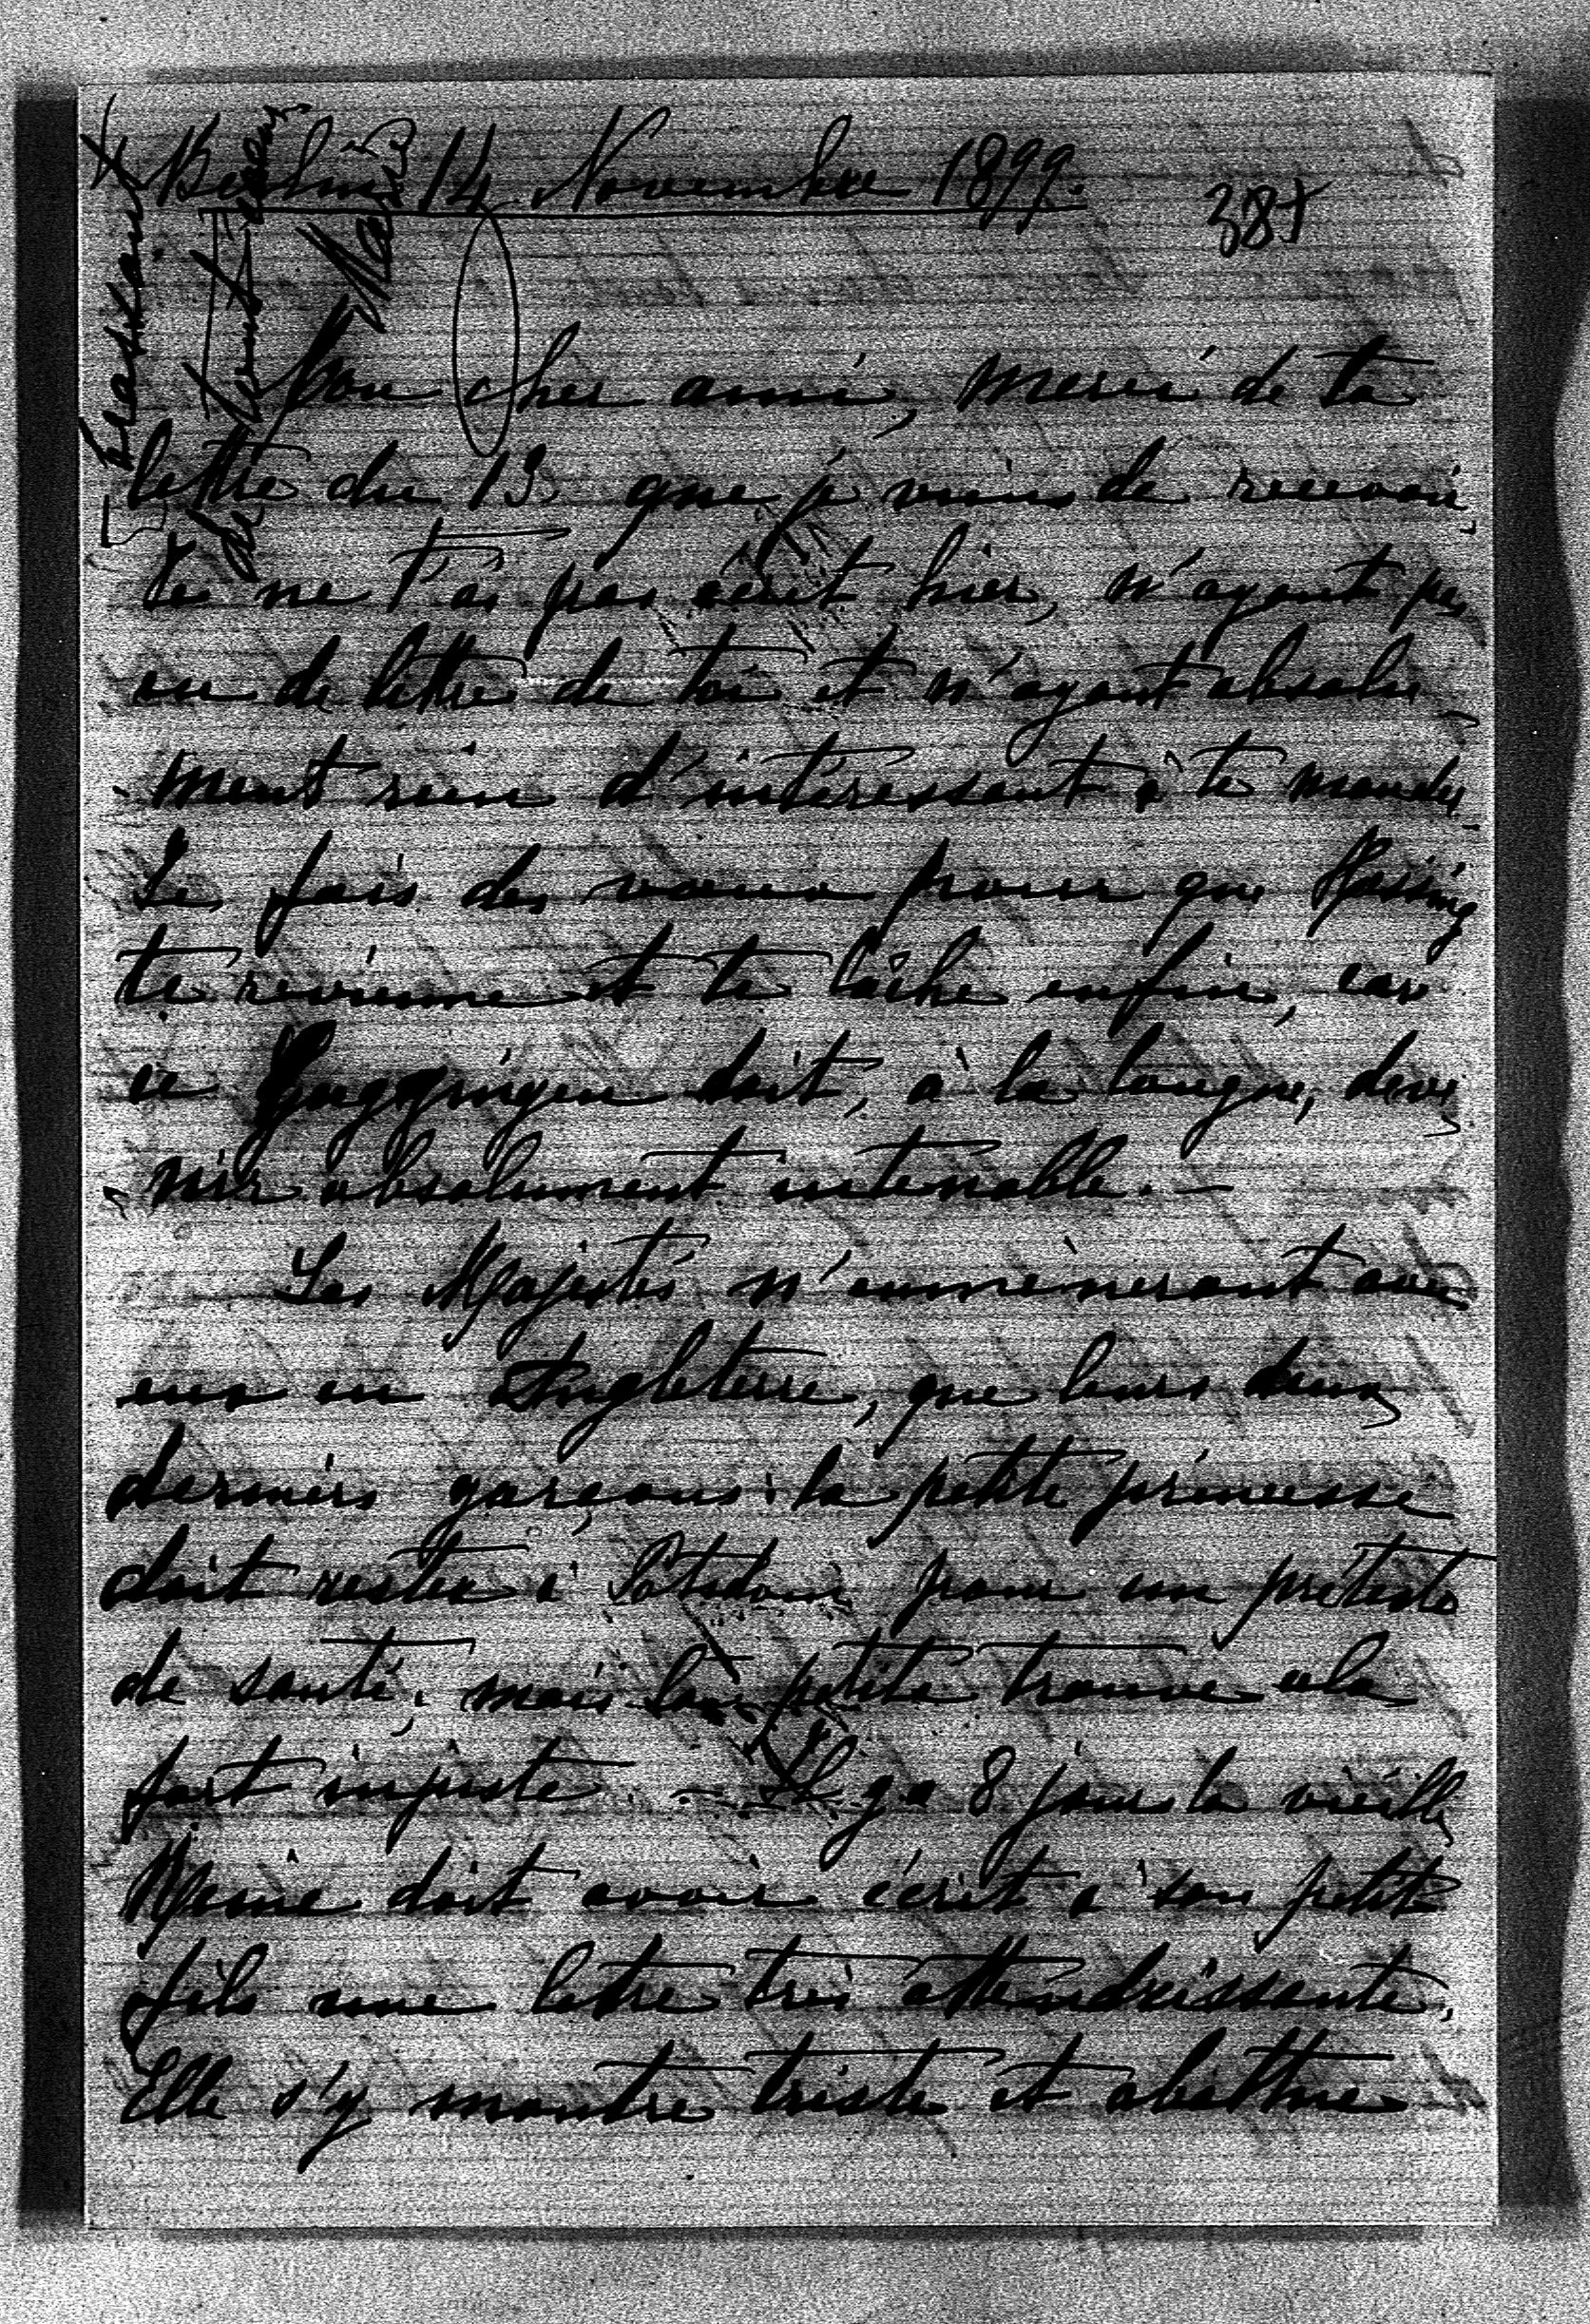 Berlin 14 Novembre 1899.
387
Mon cher ami, merci de ta
lettre du 13 que je viens de recevoir.
Je ne t'ai pas écrit hier, n'ayant pas
eu de lettre de toi et n'ayant absolu-
ment rien d'intéressant à te mander.
Je fais des voeux pour que
te revienne et te lâche enfin, car
ce Guggingen doit, à la longue, deve-
nir absolument intenable. —
Les Majestés n'emmèneront avec
eux en Angleterre, que leurs deux
derniers garçons: la petite princesse
doit rester à Potsdam pour un prétexte
de santé; mais la petite trouve cela
fort injuste. — Il y a 8 jours la vieille
Reine doit avoir écrit à son petit
fils une lettre très attendrissante.
Elle s'y montre triste et abattue